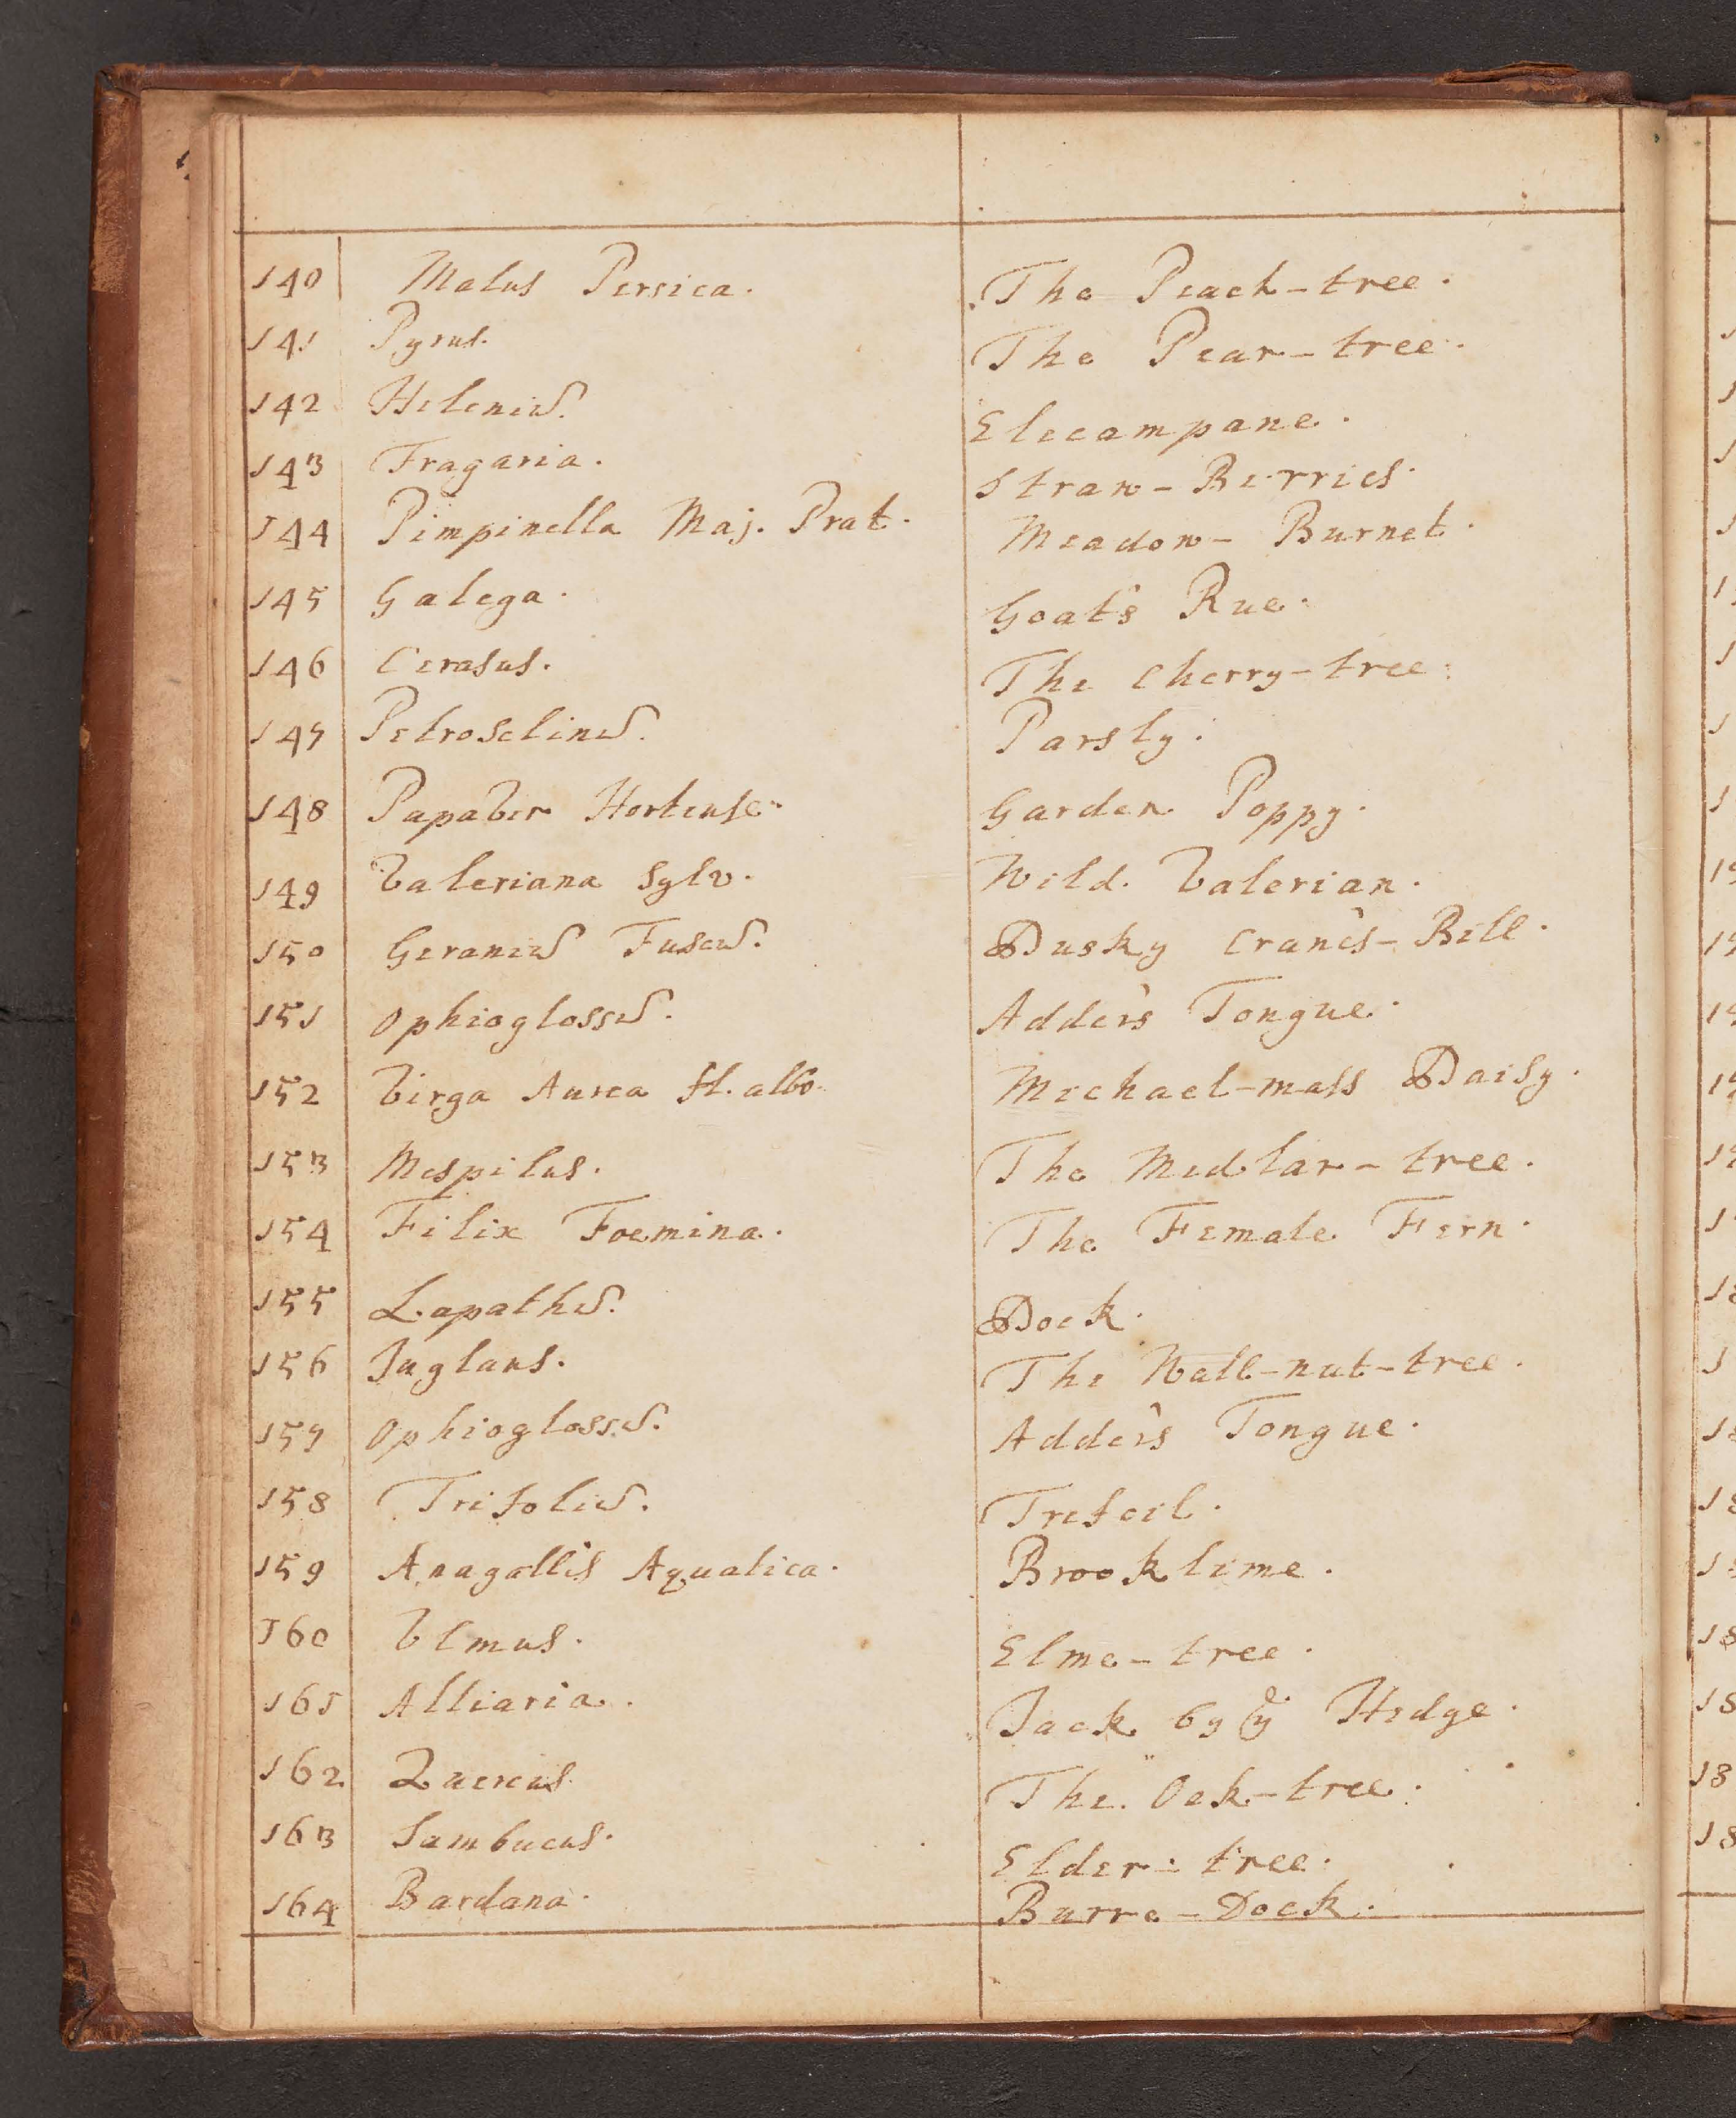 140 Malus Persica. The Peach-tree.
141 Pyrus. The Pear-tree.
142 Heleniū. Elecampane.
143 Fragaria. Straw-Berries.
144 Pimpinella Maj. Prat. Meadow-Burnet.
145 Galega. Goat's Rue.
146 Cerasus. The Cherry-tree.
147 Petroselinū. Parsly.
148 Papaver Hortense. Garden Poppy.
149 Valeriana Sylv. Wild. Valerian.
150 Geraniū Fuscū. Dusky Crane's-Bill.
151 Ophioglossū. Adder's Tongue.
152 Virga Aurea fl. albo. Michael-mass Daisy.
153 Mespilus. The Medlar-tree.
154 Filix Foemina. The Female Fern.
155 Lapathū. Dock.
156 Juglans. The Wall-nut-tree.
157 Ophioglossū. Adder's Tongue.
158 Trifoliū. Trefoil.
159 Anagallis Aquatica. Brooklime.
160 Ulmus. Elme-tree.
161 Alliaria. Jack by yͤ Hedge.
162 Quercus. The Oak-tree.
163 Sambucus. Elder-tree.
164 Bardana. Burre-Dock.